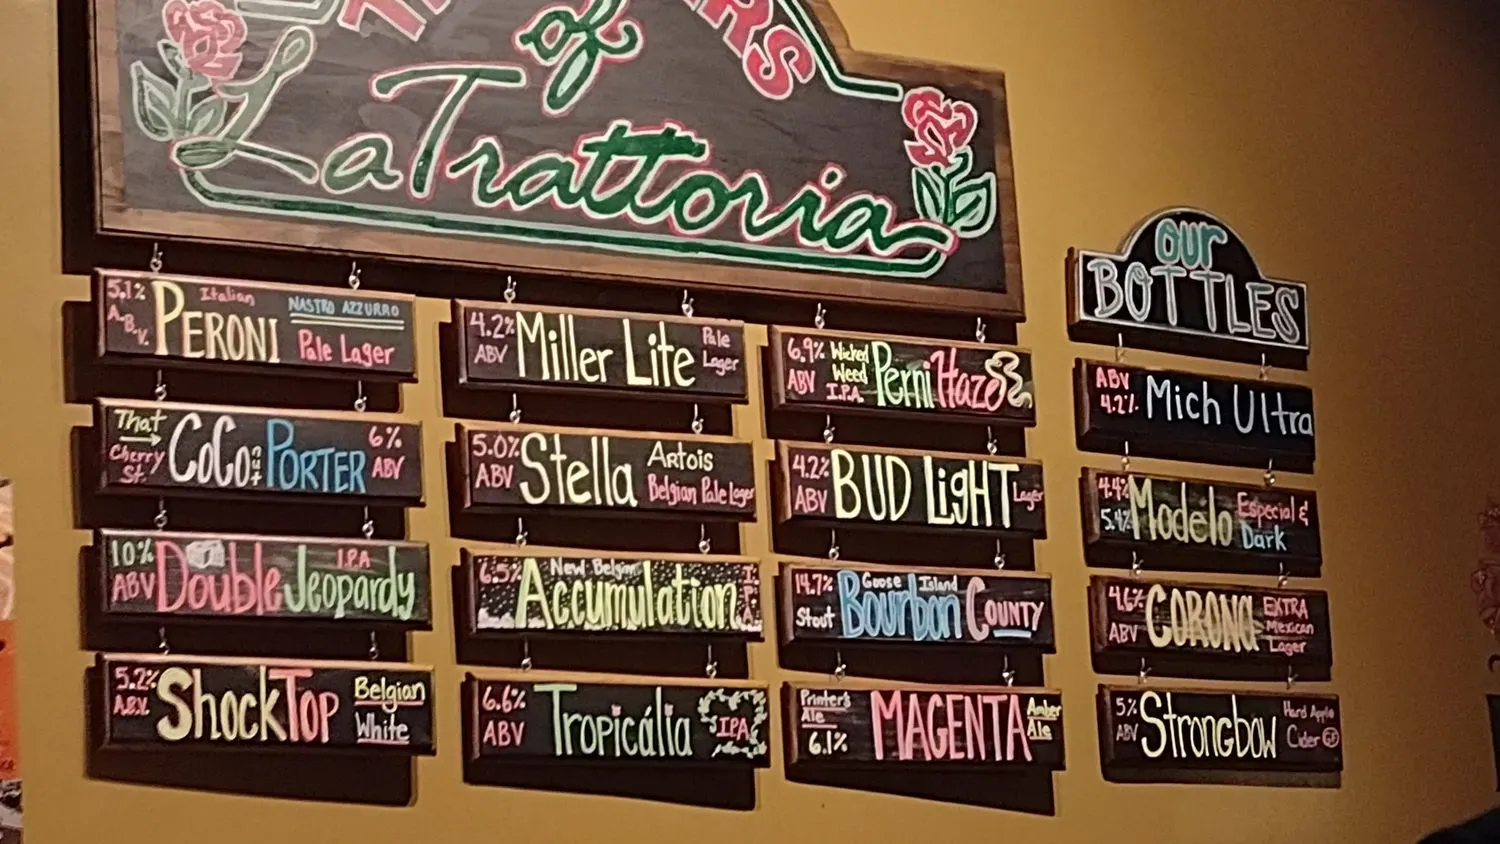 of
La Trattoria
5.1% A.B.V. PERONI Italian NASTRO AZZURRO Pale Lager
4.2% ABV Miller Lite Pale Lager
6.9% ABV Wicked Weed I.P.A. Perni Haze
That Cherry St. CoCoNut PORTER 6% ABV
5.0% ABV Stella Artois Belgian Pale Lager
4.2% ABV BUD LigHT Lager
10% ABV Double Jeopardy I.P.A
6.5% New Belgium Accumulation I.P.A
14.7% Stout Goose Island Bourbon County
5.2% A.B.V. ShockTop Belgian White
6.6% ABV Tropicália I.P.A
Printer's Ale 6.1% MAGENTA Amber Ale
our
BOTTLES
ABV 4.2% Mich Ultra
4.4% 5.4% Modelo Especial & Dark
4.6% ABV CORONA EXTRA Mexican Lager
5% ABV Strongbow Hard Apple Cider GF